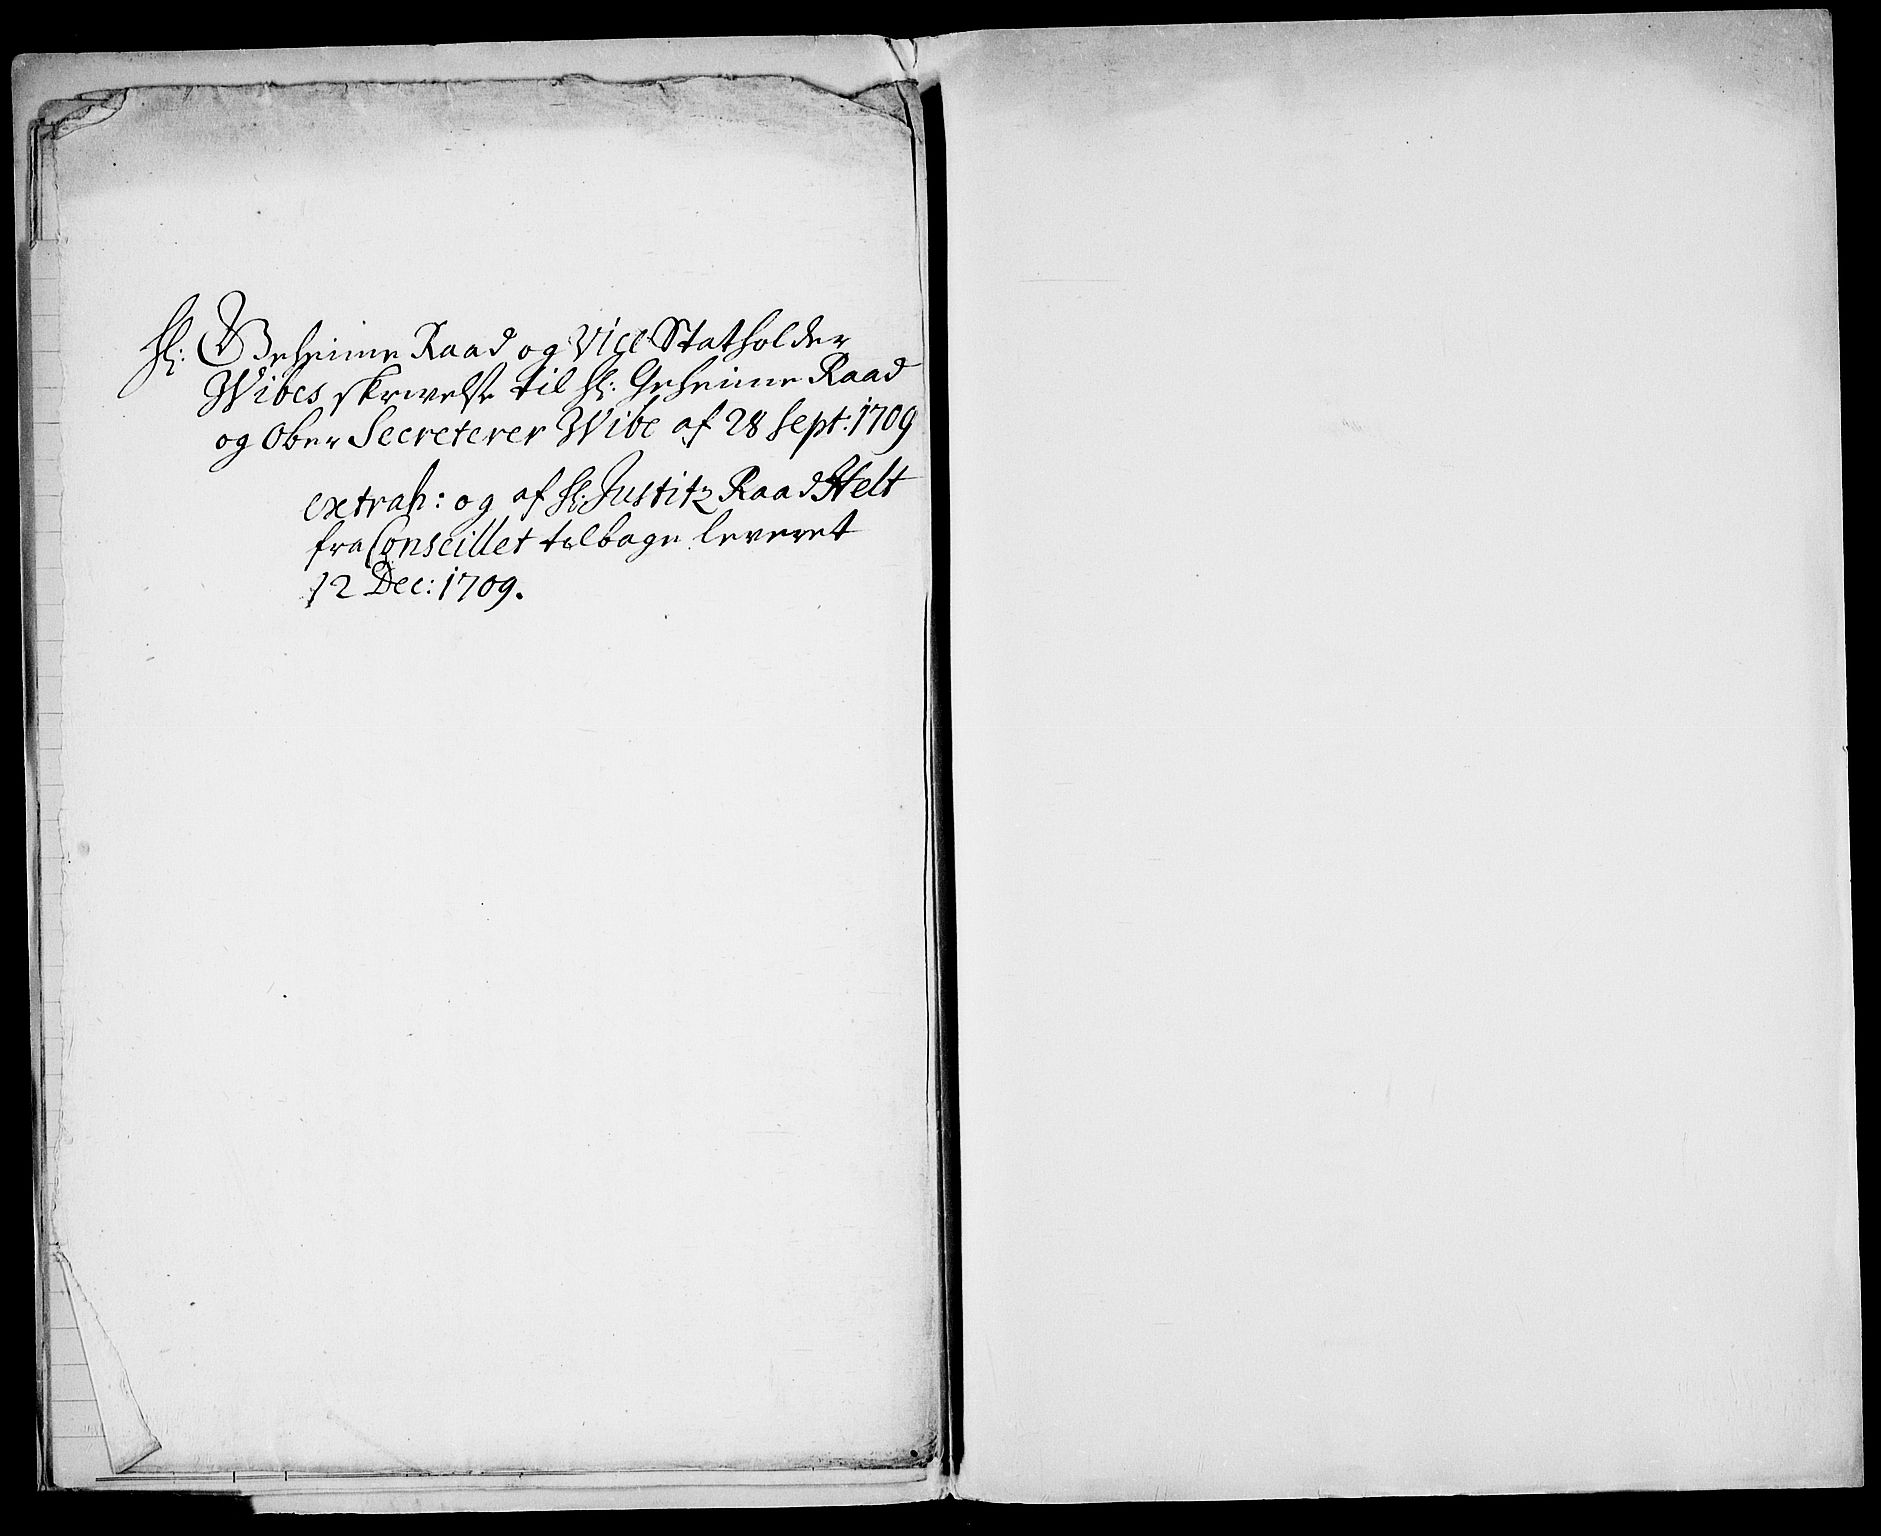 Hr: Geheime Raad og Vice Statholder
Wibes skrivelse til Hr: Geheime Raad
og Ober Secreterer Wibe af 28 Sept. 1709
extrah: og af Hr: Justitz Raad Helt
fra Conseillet tilbage leveret
12 Dec: 1709.